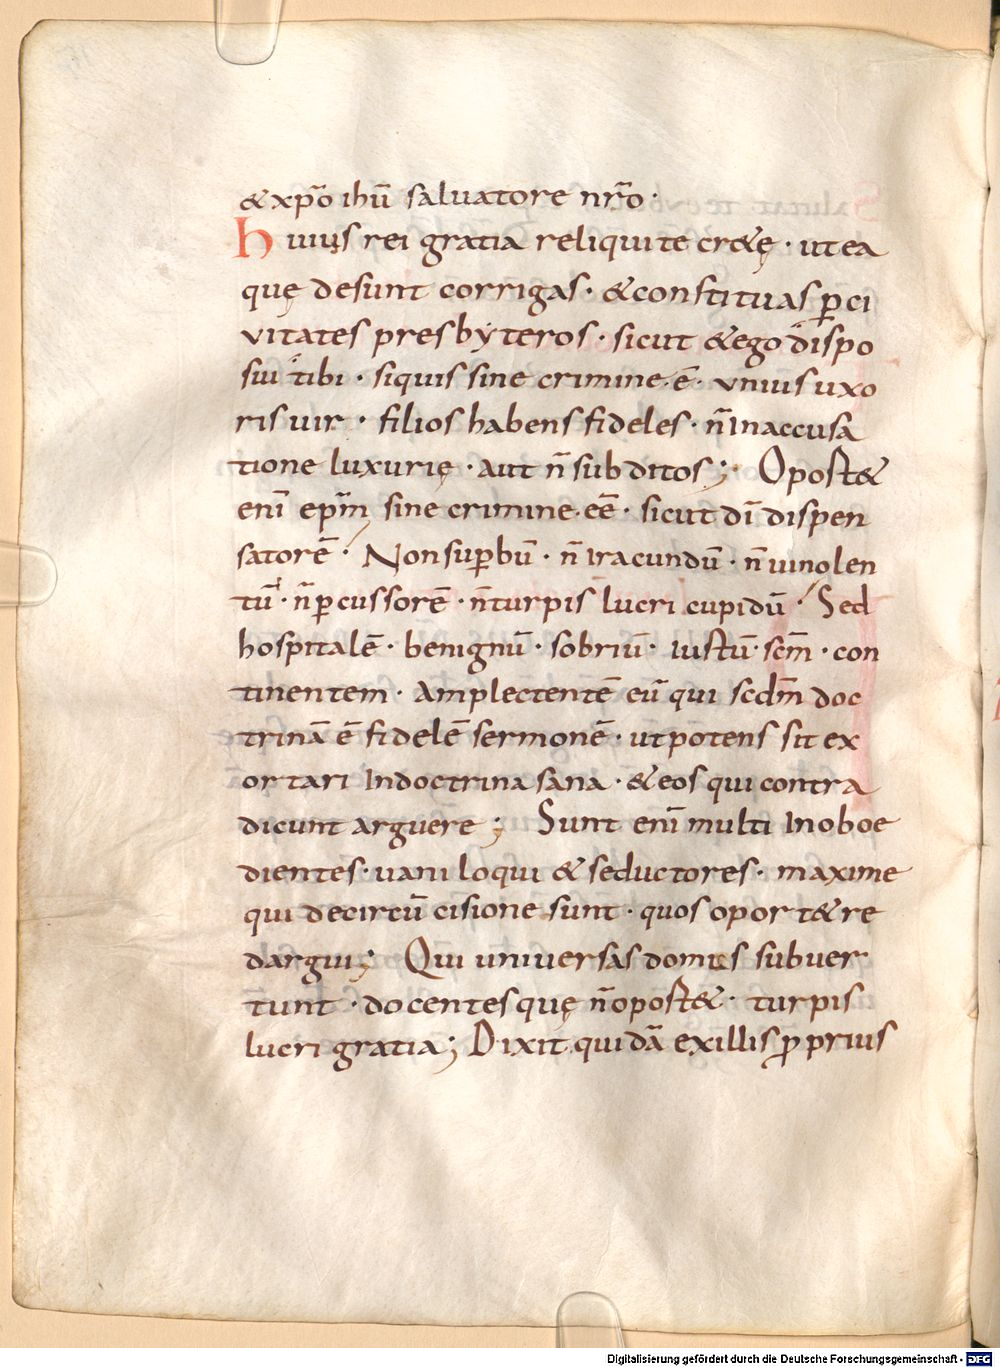 &xp̄o ihū saluatore nr̄o·
Huius rei gratia reliqui te cr&ę· ut ea
quę desunt corrigas· &constituas p̲ ci
vitates presbẏteros· sicut &ego dispo
sui tibi· siquis sine crimine·ē· vnius uxo
ris uir· filios habens fideles· n̄ Inaccusa
tione luxurię· aut n̄ subditos; Oport&
enī ep̄m sine crimine·eē· sicut dī dispen
satorē· Non sup̲bū· n̄ Iracundū· n̄ uinolen
tū· n̄ p̲cussorē· n̄ turpis lucri cupidū· Sed
hospitalē· benignū· sobriū· iustū· sc̄m· con
tinentem· Amplectentē eū qui scd̄m doc
trinā ē fidelē sermonē· ut potens sit ex
ortari Indoctrina sana· &eos qui contra
dicunt arguere; Sunt enī multi Inoboe
dientes· uani loqui & seductores· maxime
qui decircū cisione sunt· quos oport&re
dargui; Qui uniuersas domus subuer
tunt· docentes quę n̄ oport&· turpis
lucri gratia; Dixit quidā exillis p̲prius
Digitalisierung gefördert durch die Deutsche Forschungsgemeinschaft - DFG